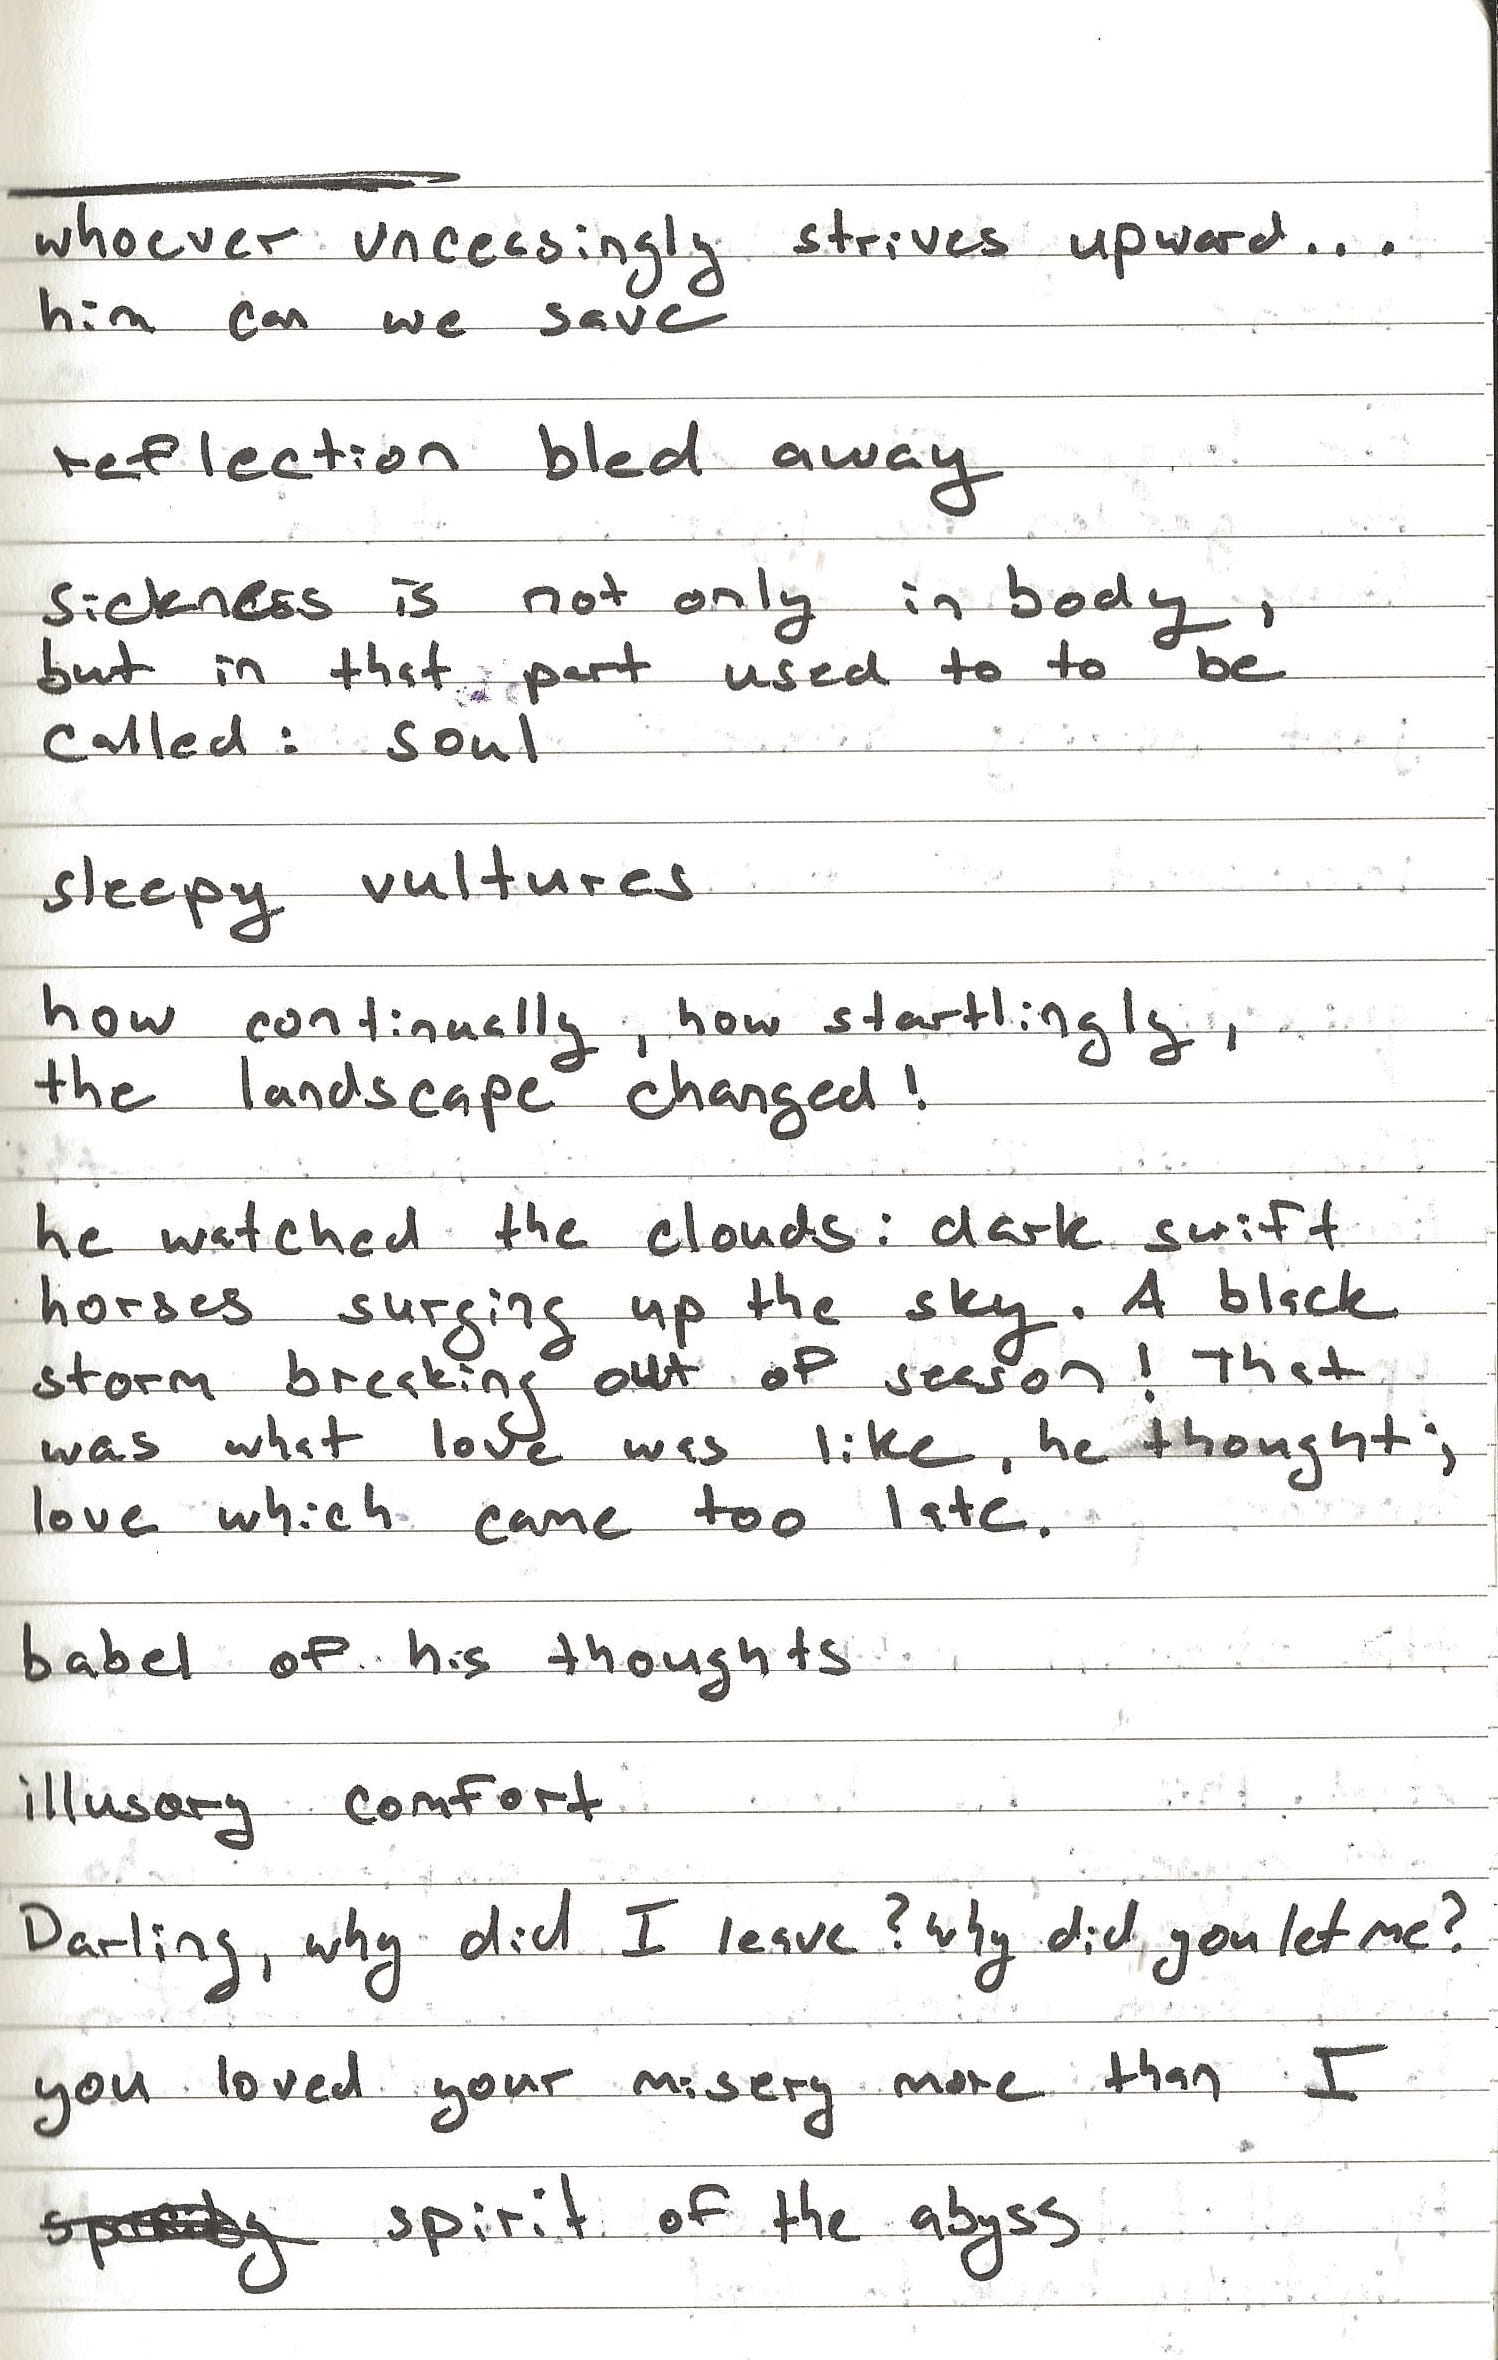 whoever unceasingly strives upward...
him can we save
reflection bled away
sickness is not only in body,
but in that part used to to be
called: soul
sleepy vultures
how continually, how startlingly,
the landscape changed!
he watched the clouds: dark swift
horses surging up the sky. A black
storm breaking out of season! That
was what love was like, he thought;
love which came too late.
babel of his thoughts
illusory comfort
Darling, why did I leave? Why did you let me?
you loved your misery more than I
spirit of the abyss